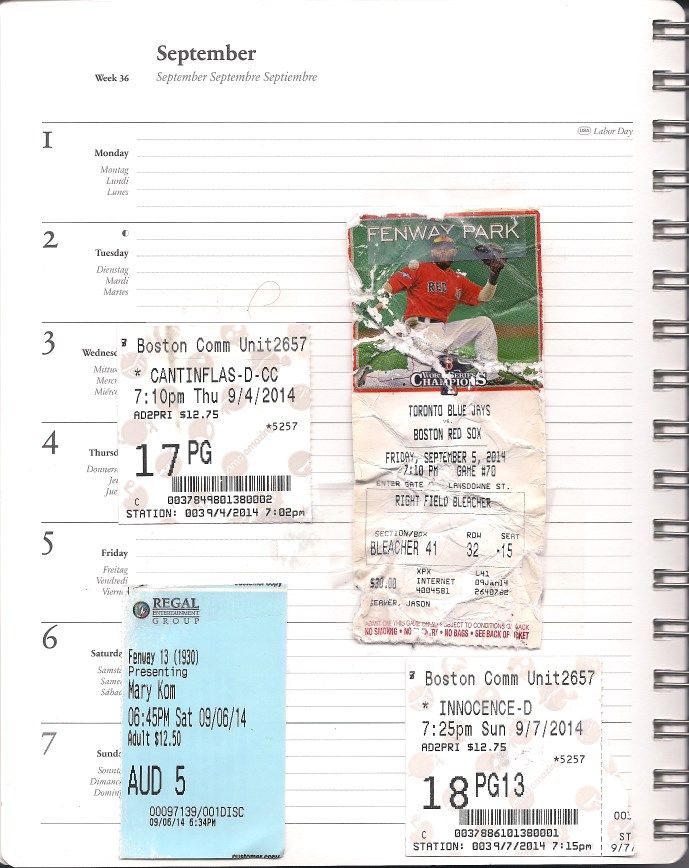 September
Week 36
September Septembre Septiembre
1
USA Labor Day
Monday
Montag
Lundi
Lunes
2
Tuesday
Dienstag
Mardi
Martes
3
Wednes
4
Thursd
5
Friday
Freitag
Vendredi
6
Saturda
7
Sunda
Boston Comm Unit2657
* CANTINFLAS-D-CC
7:10pm Thu 9/4/2014
AD2PRI $12.75
*5257
17 PG
C 0037849801380002
STATION: 0039/4/2014 7:02pm
FENWAY PARK
RED
WORLD SERIES
CHAMPIONS
TORONTO BLUE JAYS
VS.
BOSTON RED SOX
FRIDAY, SEPTEMBER 5, 2014
7:10 PM GAME #70
ENTER GATE LANSDOWNE ST.
RIGHT FIELD BLEACHER
SECTION/BOX ROW SEAT
BLEACHER 41 32 15
XPX L41
$20.00 INTERNET 09Jan14
4004581
JASON
NO SMOKING • NO • NO BAGS • SEE BACK OF TICKET
customer copy
REGAL
ENTERTAINMENT
GROUP
Fenway 13 (1930)
Presenting
Mary Kom
06:45PM Sat 09/06/14
Adult $12.50
AUD 5
00097139/001DISC
09/06/14 6:34PM
customer copy
Boston Comm Unit2657
* INNOCENCE-D
7:25pm Sun 9/7/2014
AD2PRI $12.75
*5257
18 PG13
C 0037886101380001
STATION: 0039/7/2014 7:15pm
003
ST
9/7/